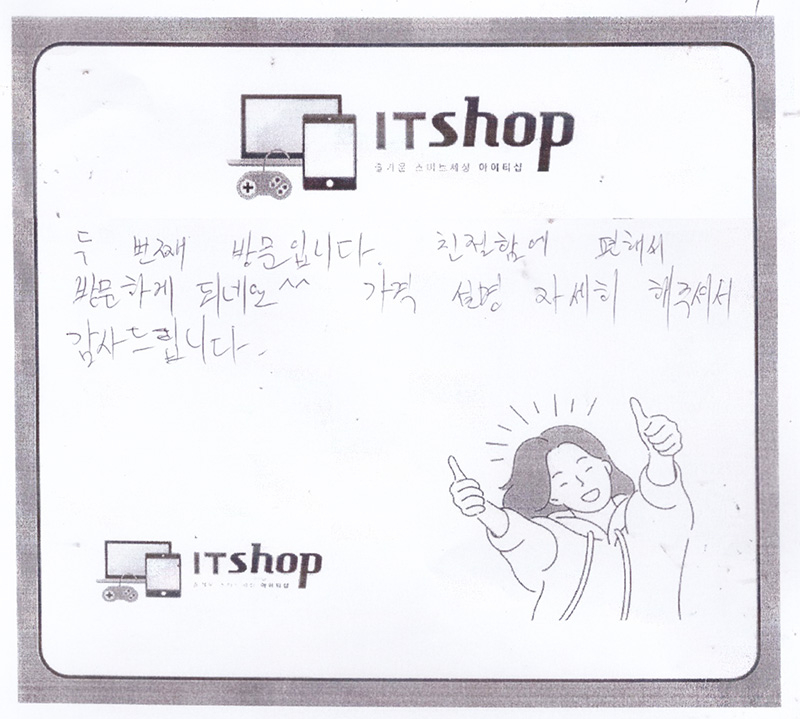 ITshop
즐거운 스마트세상 아이티샵
두 번째 방문입니다. 친절함에 편해서
방문하게 되네요^^ 가격 설명 자세히 해주셔서
감사드립니다.
ITshop
아이티샵